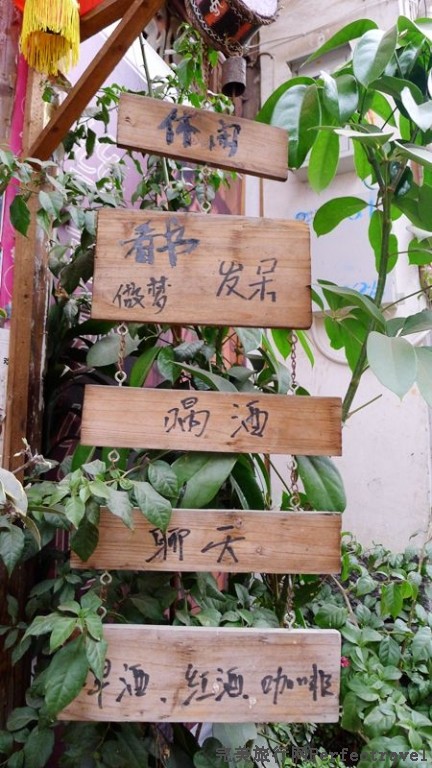 休闲
看书
做梦 发呆
喝酒
聊天
啤酒、红酒、咖啡
完美旅行网Perfectravel